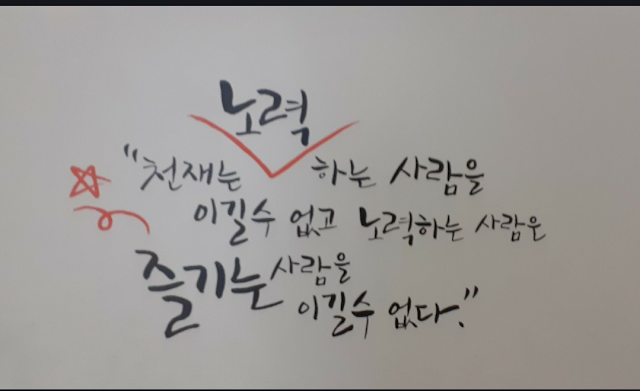 노력
"천재는 하는 사람을
이길수 없고 노력하는 사람은
즐기는 사람을
이길수 없다."